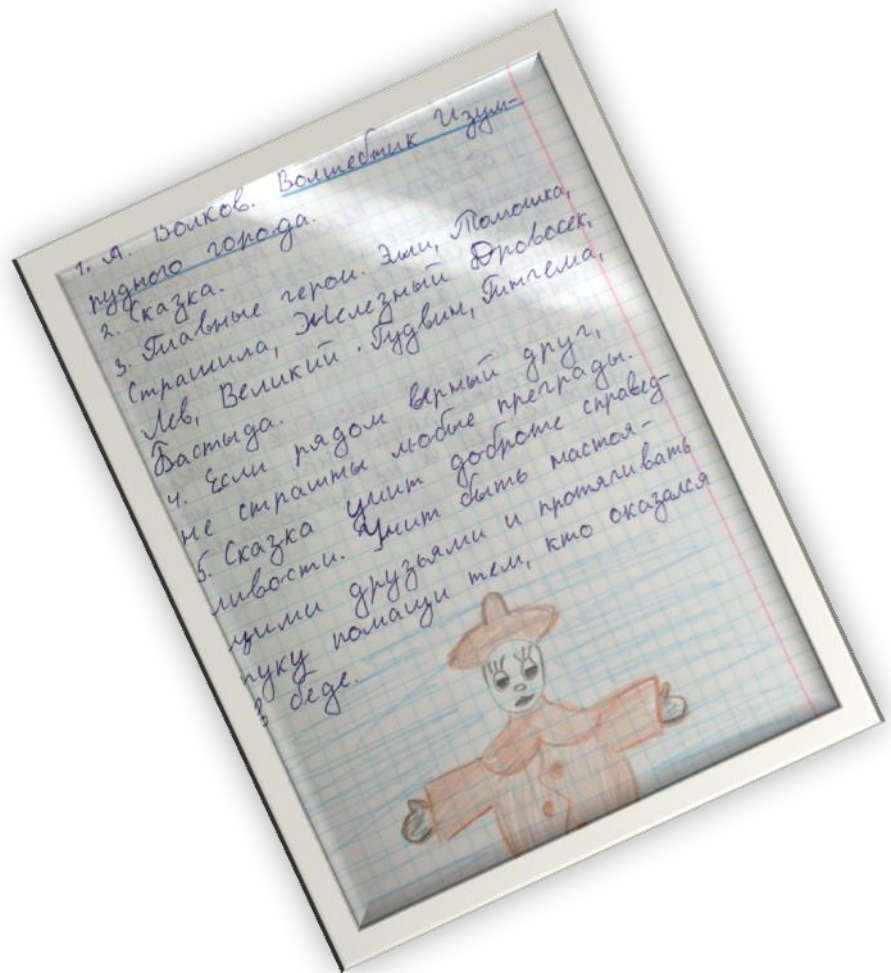 1. А. Волков. Волшебник Изум-
рудного города.
2. Сказка.
3. Главные герои. Элли, Тотошка,
Страшила, Железный Дровосек,
Лев, Великий Гудвин, Гингема,
Бастида.
4. Если рядом верный друг,
не страшны любые преграды.
5. Сказка учит доброте справед-
ливости. Учит быть настоя-
щими друзьями и протягивать
руку помощи тем, кто оказался
в беде.